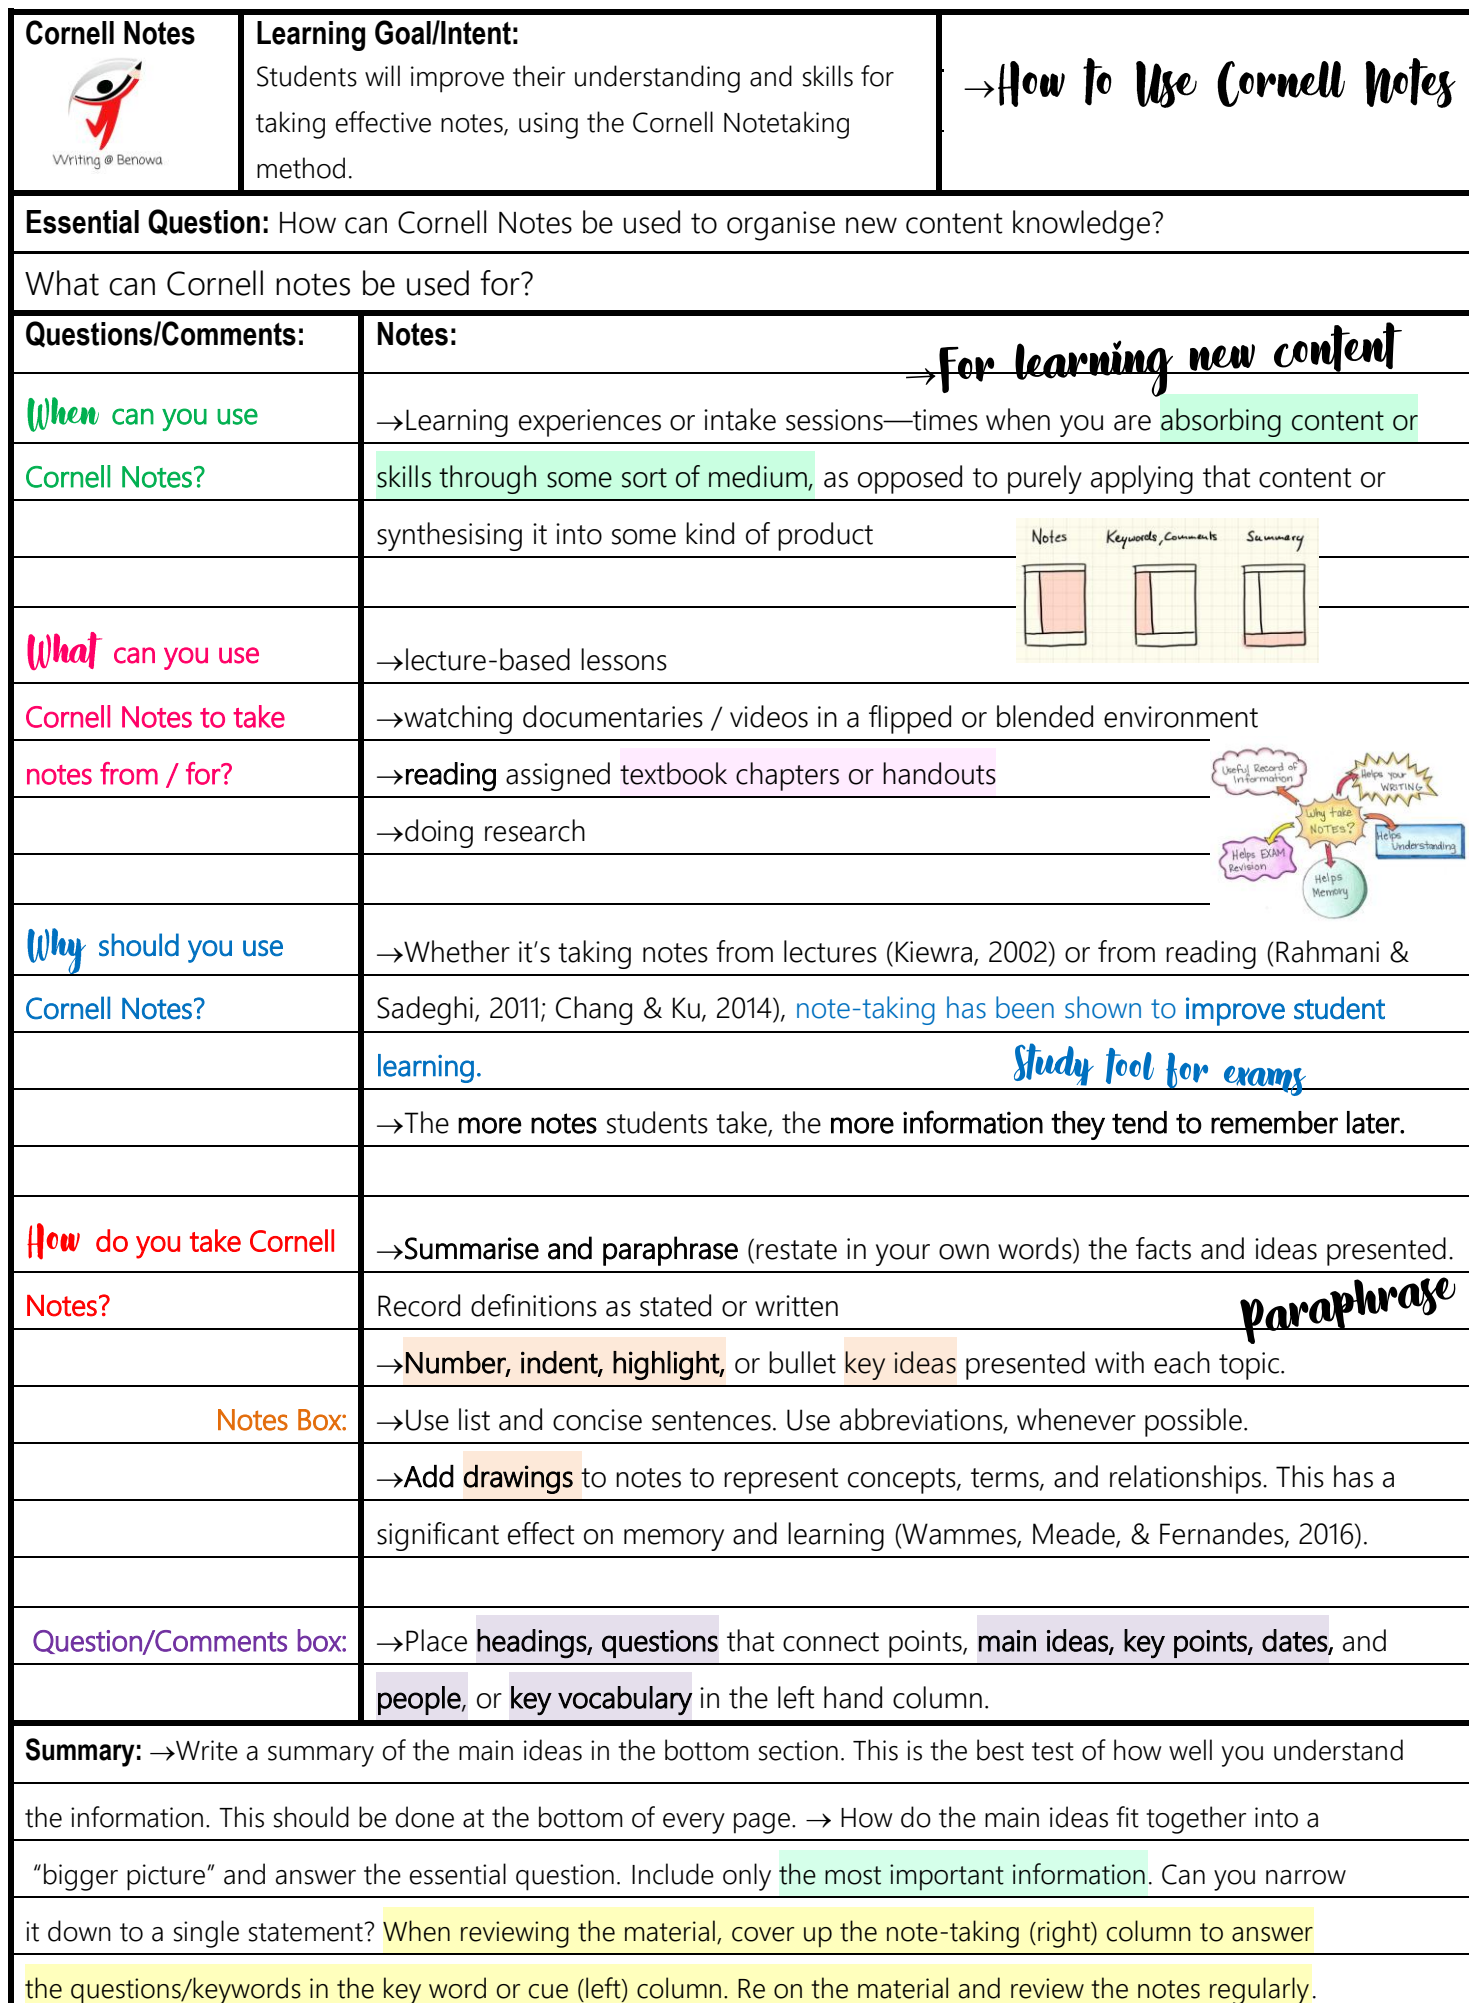 Cornell Notes
Writing @ Benowa
Learning Goal/Intent:
Students will improve their understanding and skills for
taking effective notes, using the Cornell Notetaking
method.
→How to Use Cornell Notes
Essential Question: How can Cornell Notes be used to organise new content knowledge?
What can Cornell notes be used for?
Questions/Comments:
Notes:
→For learning new content
When can you use
→Learning experiences or intake sessions—times when you are absorbing content or
Cornell Notes?
skills through some sort of medium, as opposed to purely applying that content or
synthesising it into some kind of product
Notes
Keywords, Comments
Summary
What can you use
→lecture-based lessons
Cornell Notes to take
→watching documentaries / videos in a flipped or blended environment
notes from / for?
→reading assigned textbook chapters or handouts
→doing research
Useful Record of
Information
Helps your
WRITING
Why take
NOTES?
Helps
Understanding
Helps EXAM
Revision
Helps
Memory
Why should you use
→Whether it's taking notes from lectures (Kiewra, 2002) or from reading (Rahmani &
Cornell Notes?
Sadeghi, 2011; Chang & Ku, 2014), note-taking has been shown to improve student
learning.
Study tool for exams
→The more notes students take, the more information they tend to remember later.
How do you take Cornell
→Summarise and paraphrase (restate in your own words) the facts and ideas presented.
Notes?
Record definitions as stated or written
Paraphrase
→Number, indent, highlight, or bullet key ideas presented with each topic.
Notes Box:
→Use list and concise sentences. Use abbreviations, whenever possible.
→Add drawings to notes to represent concepts, terms, and relationships. This has a
significant effect on memory and learning (Wammes, Meade, & Fernandes, 2016).
Question/Comments box:
→Place headings, questions that connect points, main ideas, key points, dates, and
people, or key vocabulary in the left hand column.
Summary: →Write a summary of the main ideas in the bottom section. This is the best test of how well you understand
the information. This should be done at the bottom of every page. → How do the main ideas fit together into a
“bigger picture” and answer the essential question. Include only the most important information. Can you narrow
it down to a single statement? When reviewing the material, cover up the note-taking (right) column to answer
the questions/keywords in the key word or cue (left) column. Re on the material and review the notes regularly.